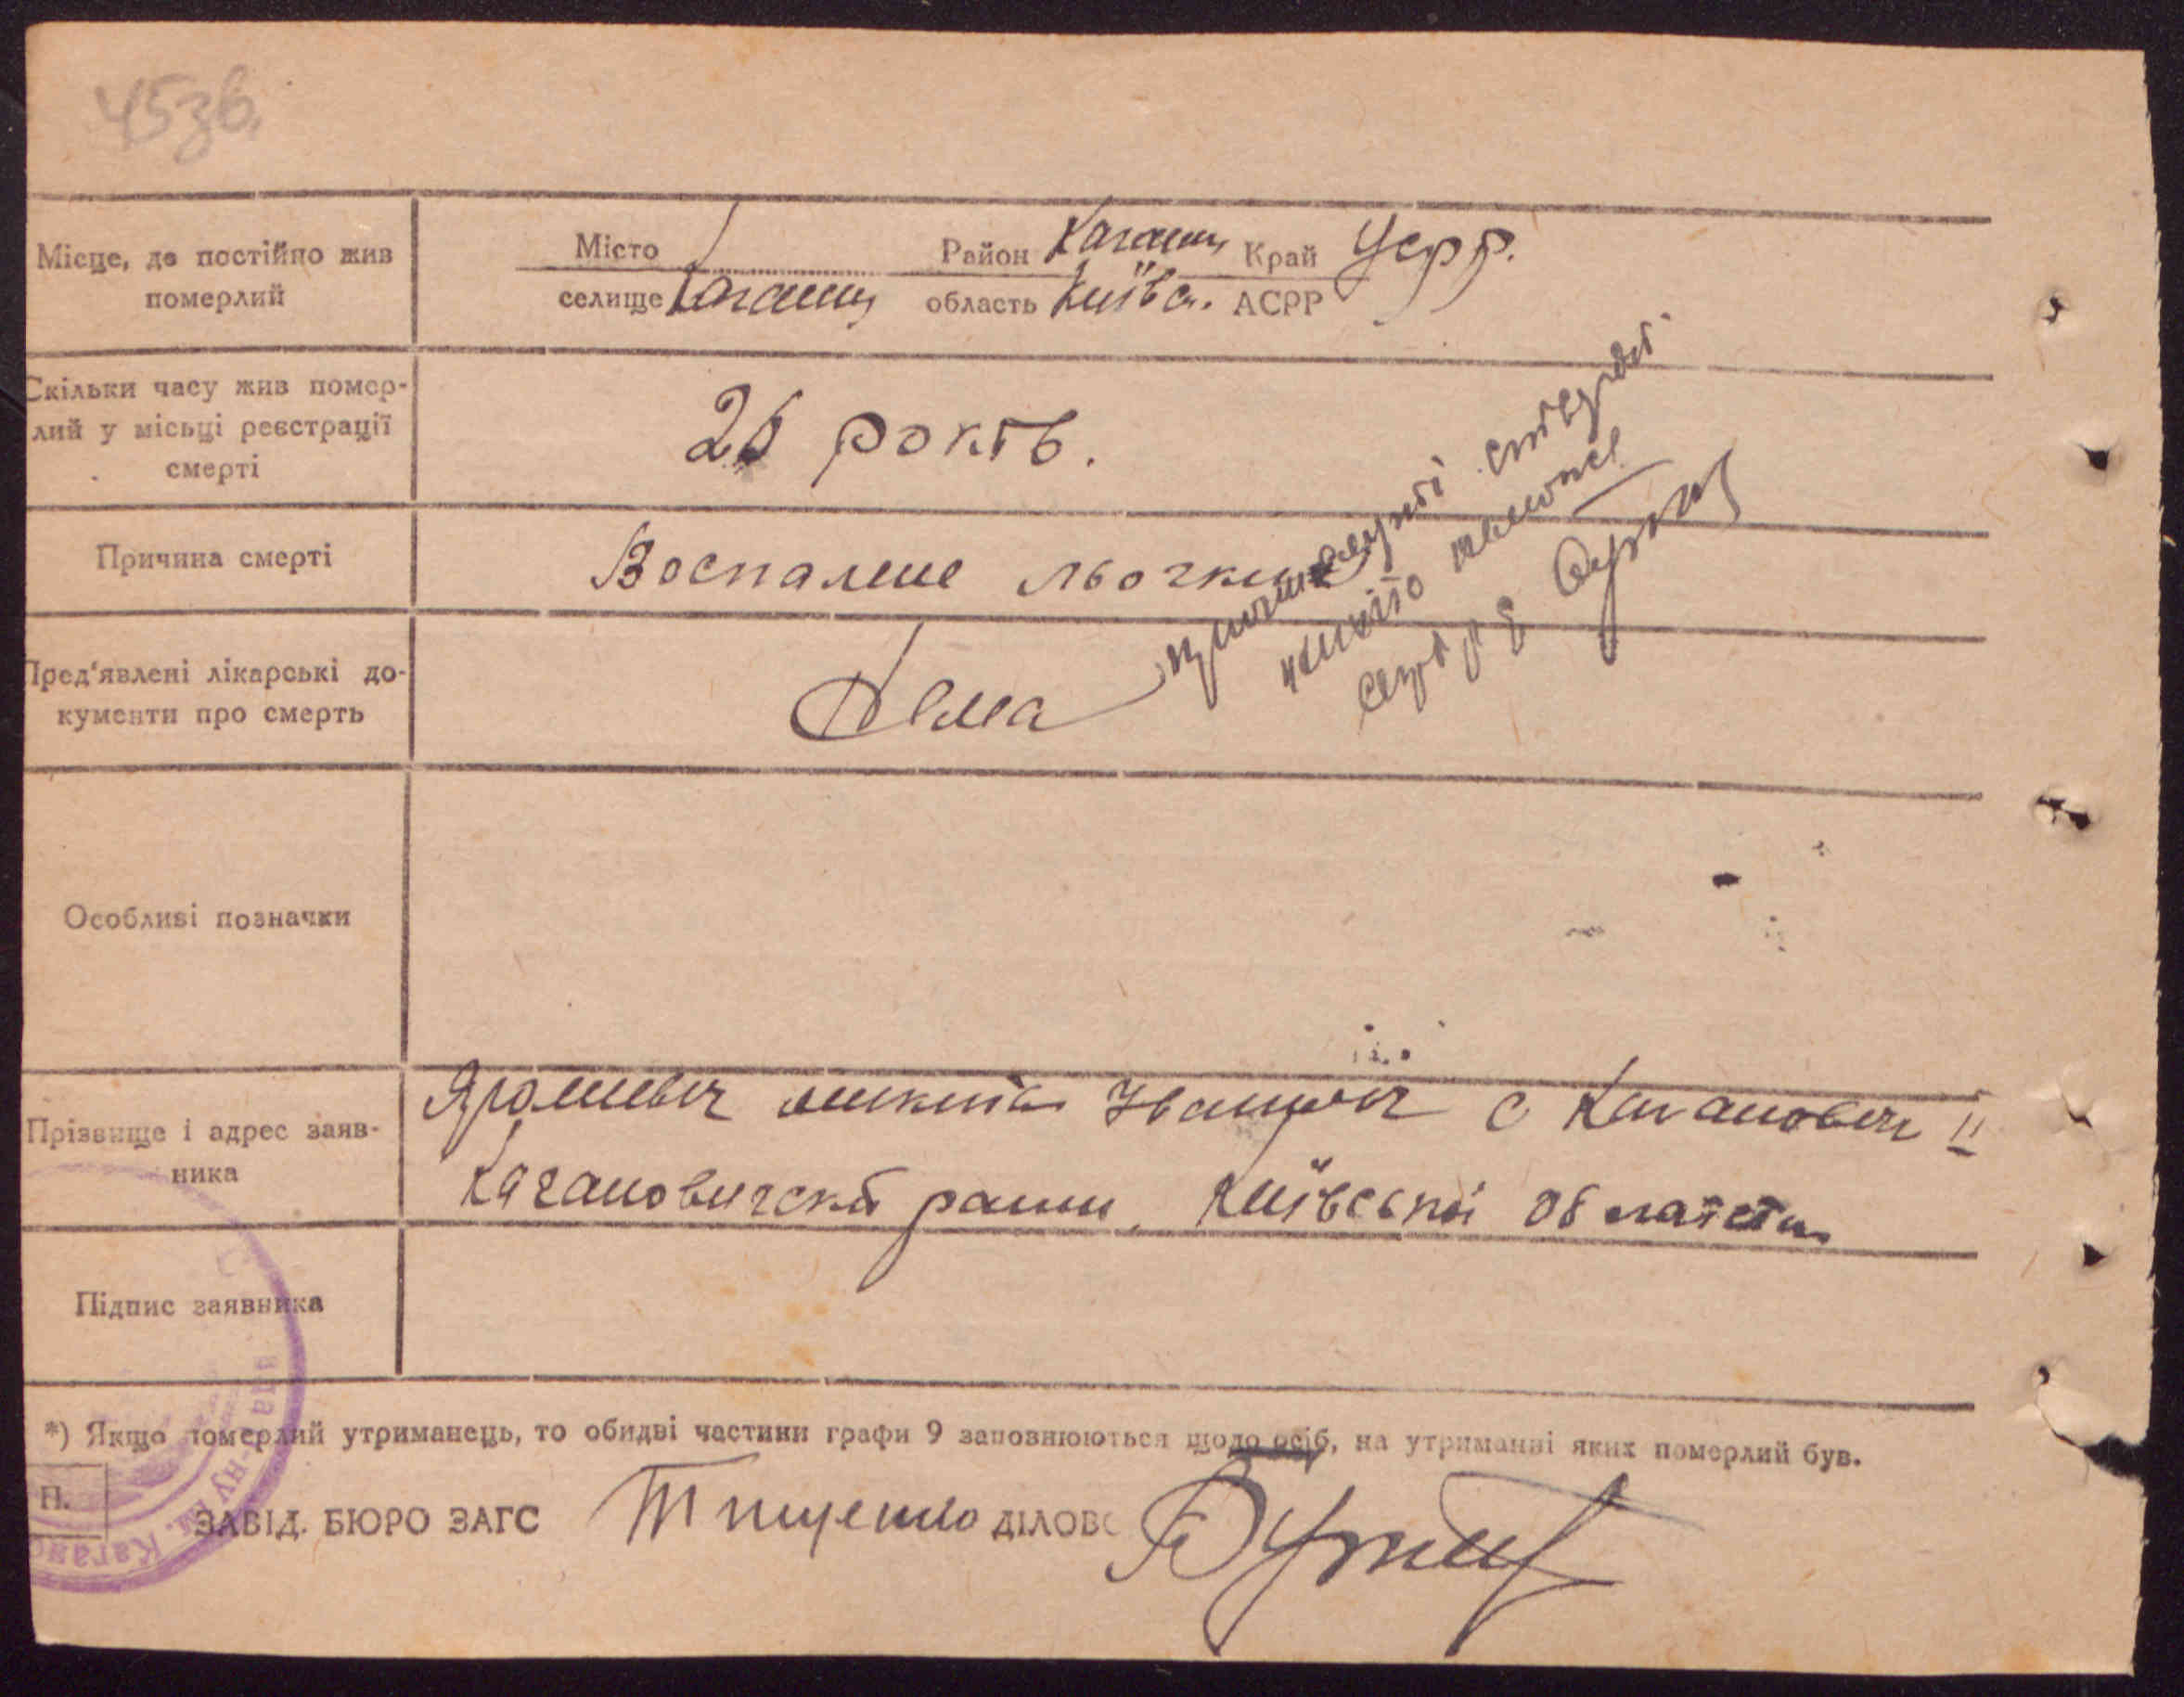 45зв.
Місце, де постійно жив
померлий
Місто
селище Каганич
Район Каганич
область Київсь.
Край УСРР.
АСРР
Скільки часу жив помер-
лий у місьці реєстрації
смерті
26 років.
Причина смерті
Воспалие льогких
Пред'явлені лікарські до-
кументи про смерть
Нема
Особливі позначки
Прізвище і адрес заяв-
ника
Яромевич Микита Іванович с Каганович II
Кагановичські раини. Київської області
Підпис заявника
*) Якщо померлий утриманець, то обидві частини графи 9 заповнюються щодо осіб, на утриманні яких померлий був.
П.
ЗАВІД. БЮРО ЗАГС Тищенко ДІЛОВО